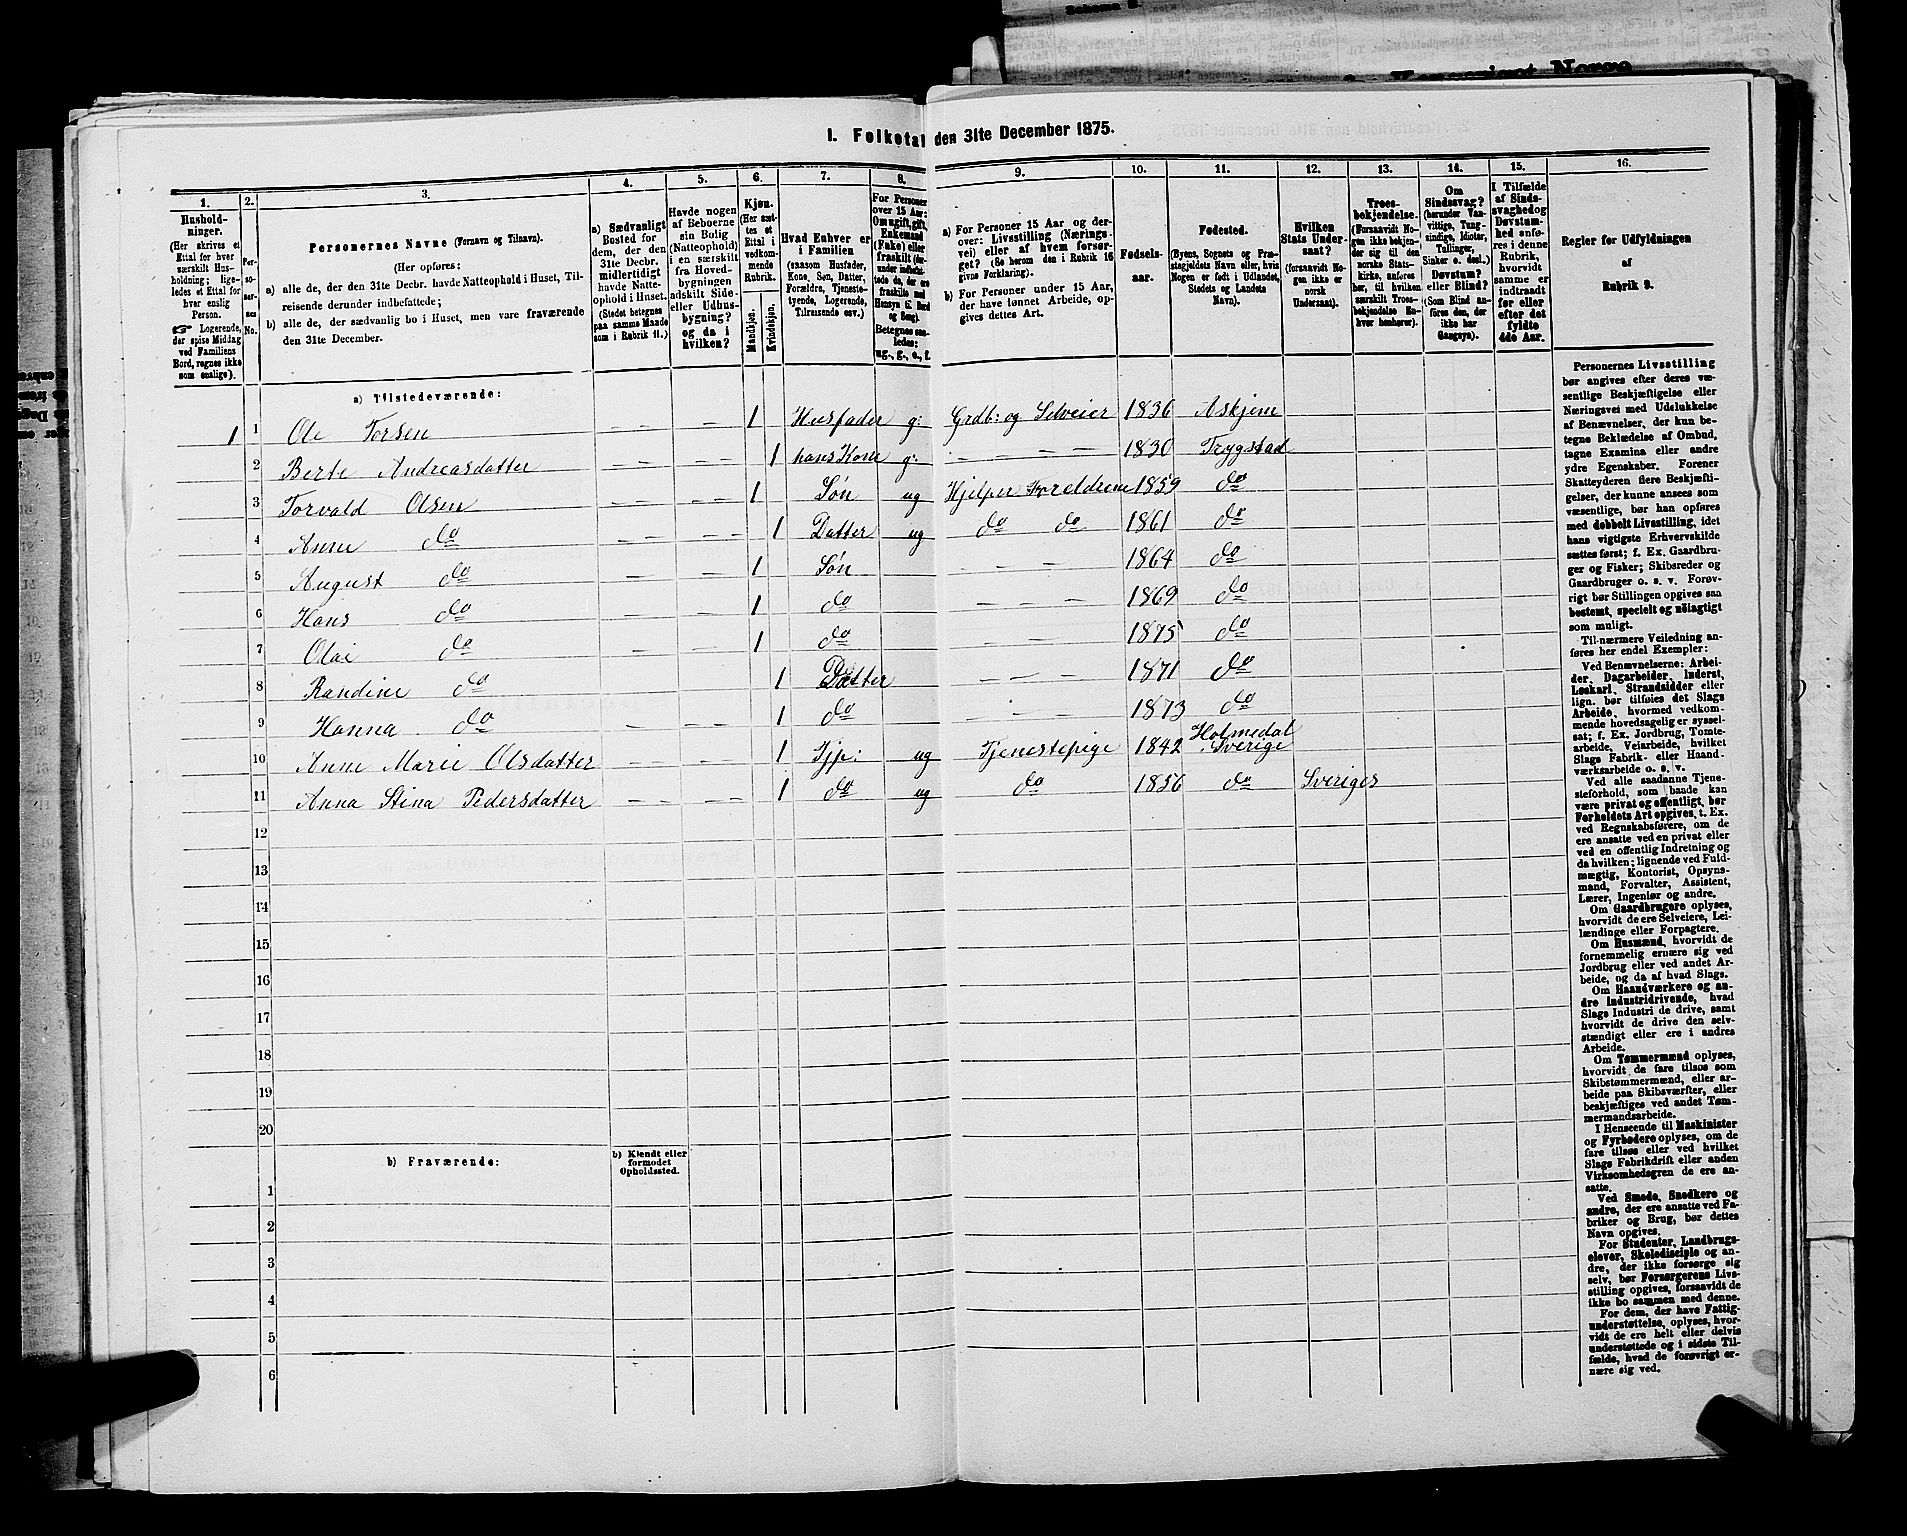 Schema 2.
Kongeriget Norge
I. Folketal den 31te December 1875.
1.
Husholdninger.
(Her skrives et
Ettal for hver
særskilt Husholdning; ligeledes
et Ettal for
hver enslig
Person.
☞ Logerende,
der spise Middag
ved Familiens
Bord, regnes ikke
som enslige).
2.
Personernes
No.
3.
Personernes Navne (Fornavn og Tilnavn).
(Her opføres:
a) alle de, der den 31te Decbr. havde Natteophold i Huset, Tilreisende derunder indbefattede;
b) alle de, der sædvanlig bo i Huset, men vare fraværende
den 31te December.
4.
a) Sædvanligt
Bosted for
dem, der den
31te Decbr.
midlertidigt
havde Natteophold i Huset.
(Stedet betegnes
paa samme Maade
som i Rubrik 11.)
5.
Havde nogen
af Beboerne
sin Bolig
(Natteophold)
i en særskilt
fra Hovedbygningen
adskilt Side-
eller Udhusbygning?
og da i
hvilken?
6.
Kjøn.
(Her sættes et
Ettal i
vedkommende
Rubrik.
Mandkjøn.
Kvindekjøn.
7.
Hvad Enhver er
i Familien
(saasom Husfader,
Kone, Søn, Datter,
Forældre, Tjenestetyende, Logerende,
Tilreisende osv.)
8.
For Personer
over 15 Aar:
Om ugift, gift,
Enkemand
(Enke) eller
fraskilt
Betegnes saaledes:
ug., g., e., f.
9.
a) For Personer 15 Aar og derover: Livsstilling (Næringsvei) eller af hvem forsørget? (Se herom den i Rubrik 16
givne Forklaring).
b) For Personer under 15 Aar,
der have lønnet Arbeide, opgives dettes Art.
10.
Fødselsaar.
11.
Fødested.
(Byens, Sognets og Præstegjeldets Navn eller, hvis
Nogen er født i Udlandet,
Stedets og Landets
Navn).
12.
Hvilken
Stats Undersaat?
(forsaavidt Nogen ikke er
norsk
Undersaat).
13.
Troesbekjendelse.
(Forsaavidt Nogen ikke bekjender sig til den
norske Statskirke, anføres
her, til hvilken
særskilt Troesbekjendelse Enhver henhører).
14.
Om
Sindssvag?
(herunder Vanvittige, Tungsindige, Idioter,
Tullinger,
Sinker o. desl.)
Døvstum?
eller Blind?
(Som Blind anføres den, der
ikke har
Gangsyn).
15.
I Tilfælde
af Sindssvaghed og
Døvstumhed anføres i denne
Rubrik,
hvorvidt
samme er
indtraadt
før eller
efter det
fyldte
4de Aar.
16.
Regler for Udfyldningen
af
Rubrik 9.
a) Tilstedeværende:
1 1 Ole Torsen — — — — 1 Husfader g: Grdb: og Selveier 1836 Askjem
2 Berte Andreasdatter — — — — 1 hans Kone g: — — — 1830 Trygstad
3 Torvald Olsen — — — — 1 Søn ug Hjelper Foreldrene 1859 do
4 Anne do — — — — 1 Datter ug do do 1861 do
5 August do — — — — 1 Søn — — — 1864 do
6 Hans do — — — — 1 do — — — 1869 do
7 Olai do — — — — 1 do — — — 1875 do
8 Randine do — — — — 1 Datter — — — 1871 do
9 Hanna do — — — — 1 do — — — 1873 do
10 Anne Marie Olsdatter — — — — 1 Tjp: ug Tjenestepige 1842 Holmedal Sverige
11 Anna Stina Pedersdatter — — — — 1 do ug do 1856 do Sveriges
12
13
14
15
16
17
18
19
20
b) Fraværende:
b) Kjendt eller
formodet
Opholdssted.
1
2
3
4
5
6
Personernes Livsstilling
bør angives efter deres væsentlige Beskjæftigelse eller
Næringsvei med Udelukkelse
af Benævnelser, der kun betegne Beklædelse af Ombud,
tagne Examina eller andre
ydre Egenskaber. Forener
Skatteyderen flere Beskjæftigelser, der kunne ansees som
væsentlige, bør han opføres
med dobbelt Livsstilling, idet
hans vigtigste Erhvervskilde
sættes først; f. Ex. Gaardbruger og Fisker; Skibsreder og
Gaardbruger o. s. v. Forøvrigt bør Stillingen opgives saa
bestemt, specielt og nøiagtigt
som muligt.
Til nærmere Veiledning anføres her endel Exempler:
Ved Benævnelserne: Arbeider, Dagarbeider, Inderst,
Løskarl, Strandsidder eller
lign. bør tilføies det Slags
Arbeide, hvormed vedkommende hovedsagelig er sysselsat; f. Ex. Jordbrug, Tomtearbeide, Veiarbeide, hvilket
Slags Fabrik- eller Haandværksarbeide o. s. v.
Ved alle saadanne Tjenesteforhold, som baade kan
være privat og offentligt, bør
Forholdets Art opgives, t. Ex.
ved Regnskabsførere, om de
ere ansatte ved en privat eller
ved en offentlig Indretning og
da hvilken; lignende ved Fuldmægtig, Kontorist, Opsynsmand, Forvalter, Assistent,
Lærer, Ingeniør og andre.
Om Gaardbrugere oplyses,
hvorvidt de ere Selveiere, Leilændinge eller Forpagtere.
Om Husmænd, hvorvidt de
fornemmelig ernære sig ved
Jordbrug eller ved andet Arbeide, og da af hvad Slags.
Om Haandværkere og andre Industridrivende, hvad
Slags Industri de drive, samt
hvorvidt de drive den selvstændigt eller ere i andres
Arbeide.
Om Tømmermænd oplyses,
hvorvidt de fare tilsøs som
Skibstømmermænd, eller arbeide paa Skibsværfter, eller
beskjæftiges ved andet Tømmermandsarbeide.
I Henseende til Maskinister
og Fyrbødere oplyses, om de
fare tilsøs eller ved hvilket
Slags Fabrikdrift eller anden
Virksomhedsgren de ere ansatte.
Ved Smede, Snedkere og
andre, der ere ansatte ved Fabriker og Brug, bør dettes
Navn opgives.
For Studenter, Landbrugselever, Skoledisciple og andre, der ikke forsørge sig
selv, bør Forsørgerens Livsstilling opgives, forsaavidt de
ikke bo sammen med denne.
For dem, der have Fattigunderstøttelse, oplyses, hvorvidt de ere helt eller delvis
understøttede og i sidste Tilfælde, hvad de forøvrigt ernære sig ved.